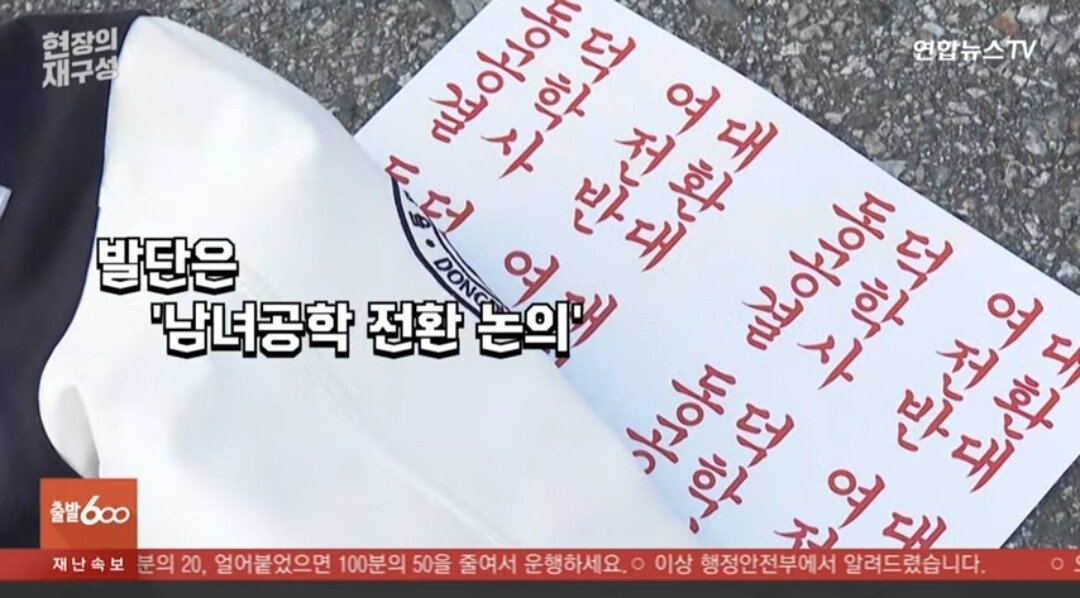 현장의
재구성
연합뉴스TV
동덕여대
공학전환
결사반대
동덕여대
동덕여대
공학전환
결사반대
동덕여대
DONG
발단은
'남녀공학 전환 논의'
출발600
재난속보 분의 20, 얼어붙었으면 100분의 50을 줄여서 운행하세요.○ 이상 행정안전부에서 알려드렸습니다. ○